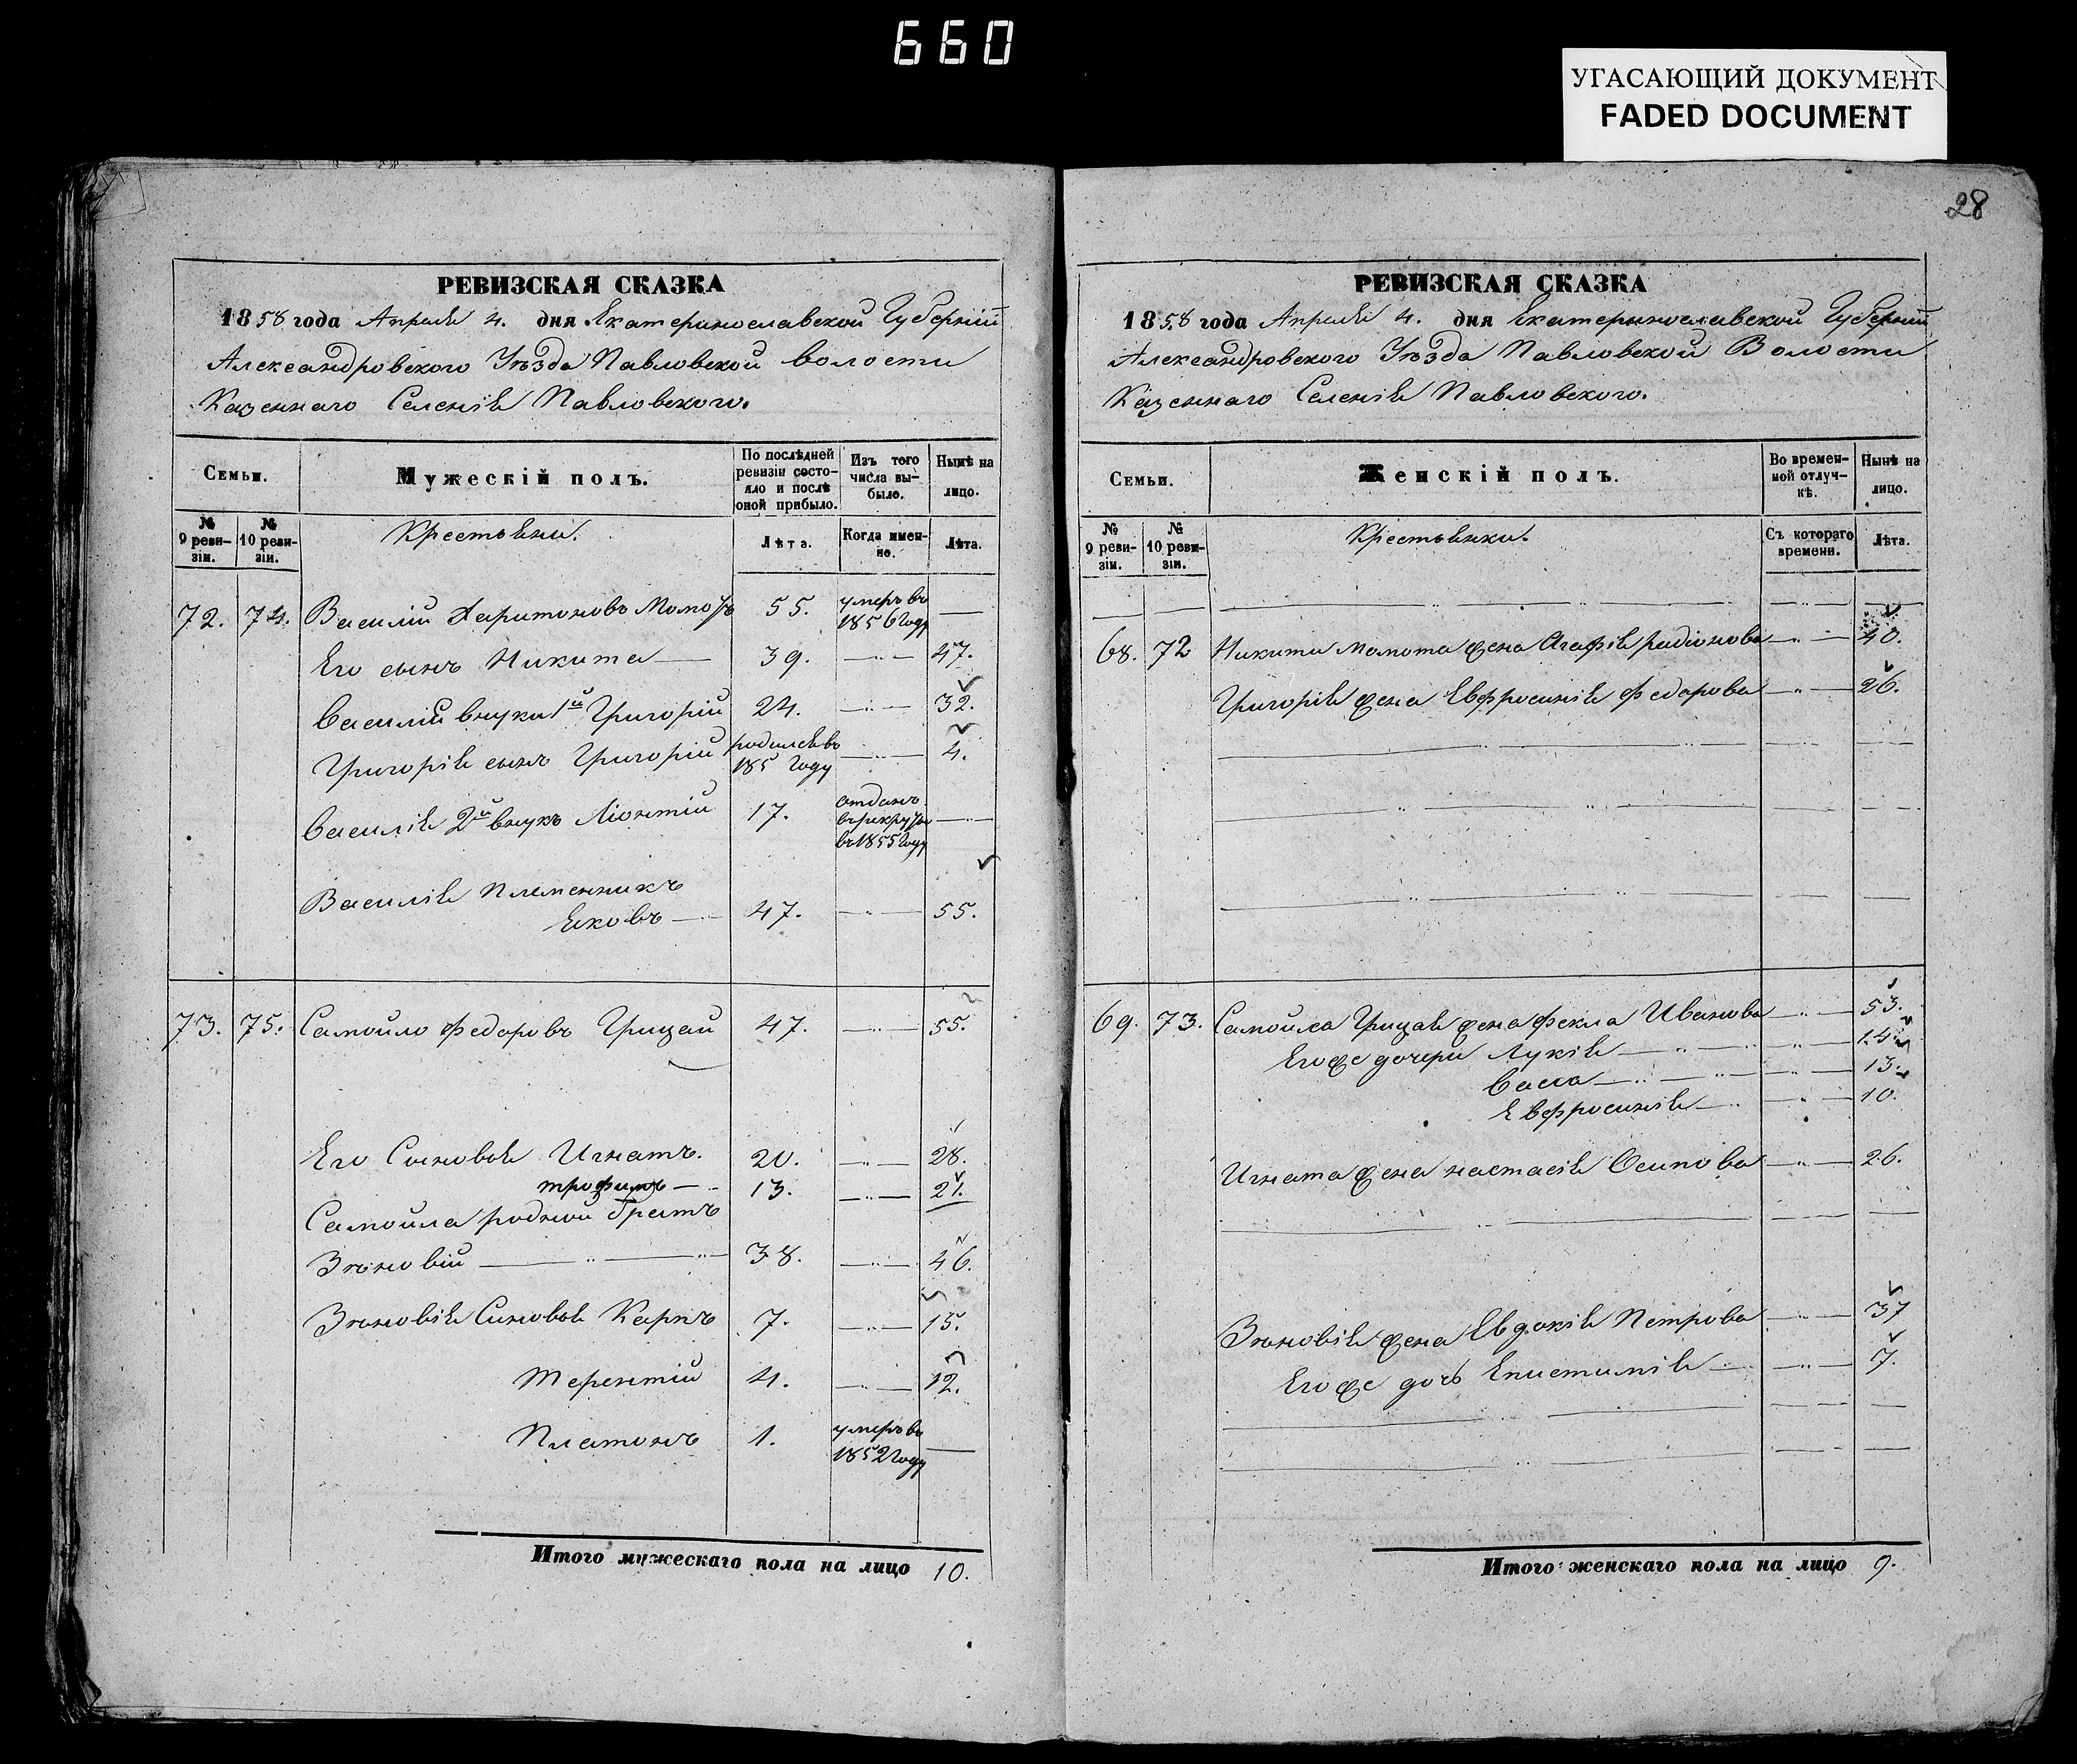 660
УГАСАЮЩИЙ ДОКУМЕНТ
FADED DOCUMENT
28
РЕВИЗСКАЯ СКАЗКА
1858 года Апреля 4. дня Екатеринославской Губерніи
Александровского Уѣзда Павловской волости
Казеннаго Селенія Павловского.
Семьи.
Мужескій полъ.
По послѣдней ревизіи состояло и послѣ оной прибыло.
Изъ того числа выбыло.
Нынѣ на лицо.
№ 9 ревизіи.
№ 10 ревизіи.
Крестьяни.
Лѣта.
Когда именно.
Лѣта.
72. 74. Василій Харитоновъ Момотъ 55. умеръ въ 1856 году —
Его сынъ Никита — 39. —„— 47.
Василія внуки 1й Григорій 24. —„— 32.
Григорія сынъ Григорій родился въ 185 году —„— 4.
Василія 2й внукъ Ліонтій 17. отданъ в рекруты въ 1855 году —„—
Василія Племенникъ
Яковъ — 47. —„— 55.
73. 75. Самойло Федоровъ Грицай 47. —„— 55.
Его Сыновья Игнатъ. 20. —„— 28.
трофимъ — 13. —„— 21.
Самойла родной братъ
Зѣновій — „ — „ 38. —„— 46.
Зѣновія Синовья Карпъ 7. —„— 15.
Терентій 4. —„— 12.
Платонъ 1. умеръ въ 1852 году —
Итого мужескаго пола на лицо 10.
РЕВИЗСКАЯ СКАЗКА
1858 года Апреля 4. дня Екатериннославской Губерніи
Александровского Уѣзда Павловской Волости
Казеннаго Селенія Павловского.
Семьи.
Женскій полъ.
Во временной отлучкѣ.
Нынѣ на лицо.
№ 9 ревизіи.
№ 10 ревизіи.
Крестьянки.
Съ котораго времени.
Лѣта.
68. 72 Никити Момота жена Агафія радіонова —„— 40.
Григорія жена Евфросинія Федорова —„— 26.
69. 73. Самойла Грицая жена Фекла Иванова —„— 53.
Его же дочери Лукія — „ — „ — 14.
Васса — „ — „ — 13.
Евфросинія — „ — 10.
Игната жена настасія Осипова —„— 26.
Зѣновія жена Евдокія Петрова —„— 37
Его же дочь Епистимія —„— 7.
Итого женскаго пола на лицо 9.